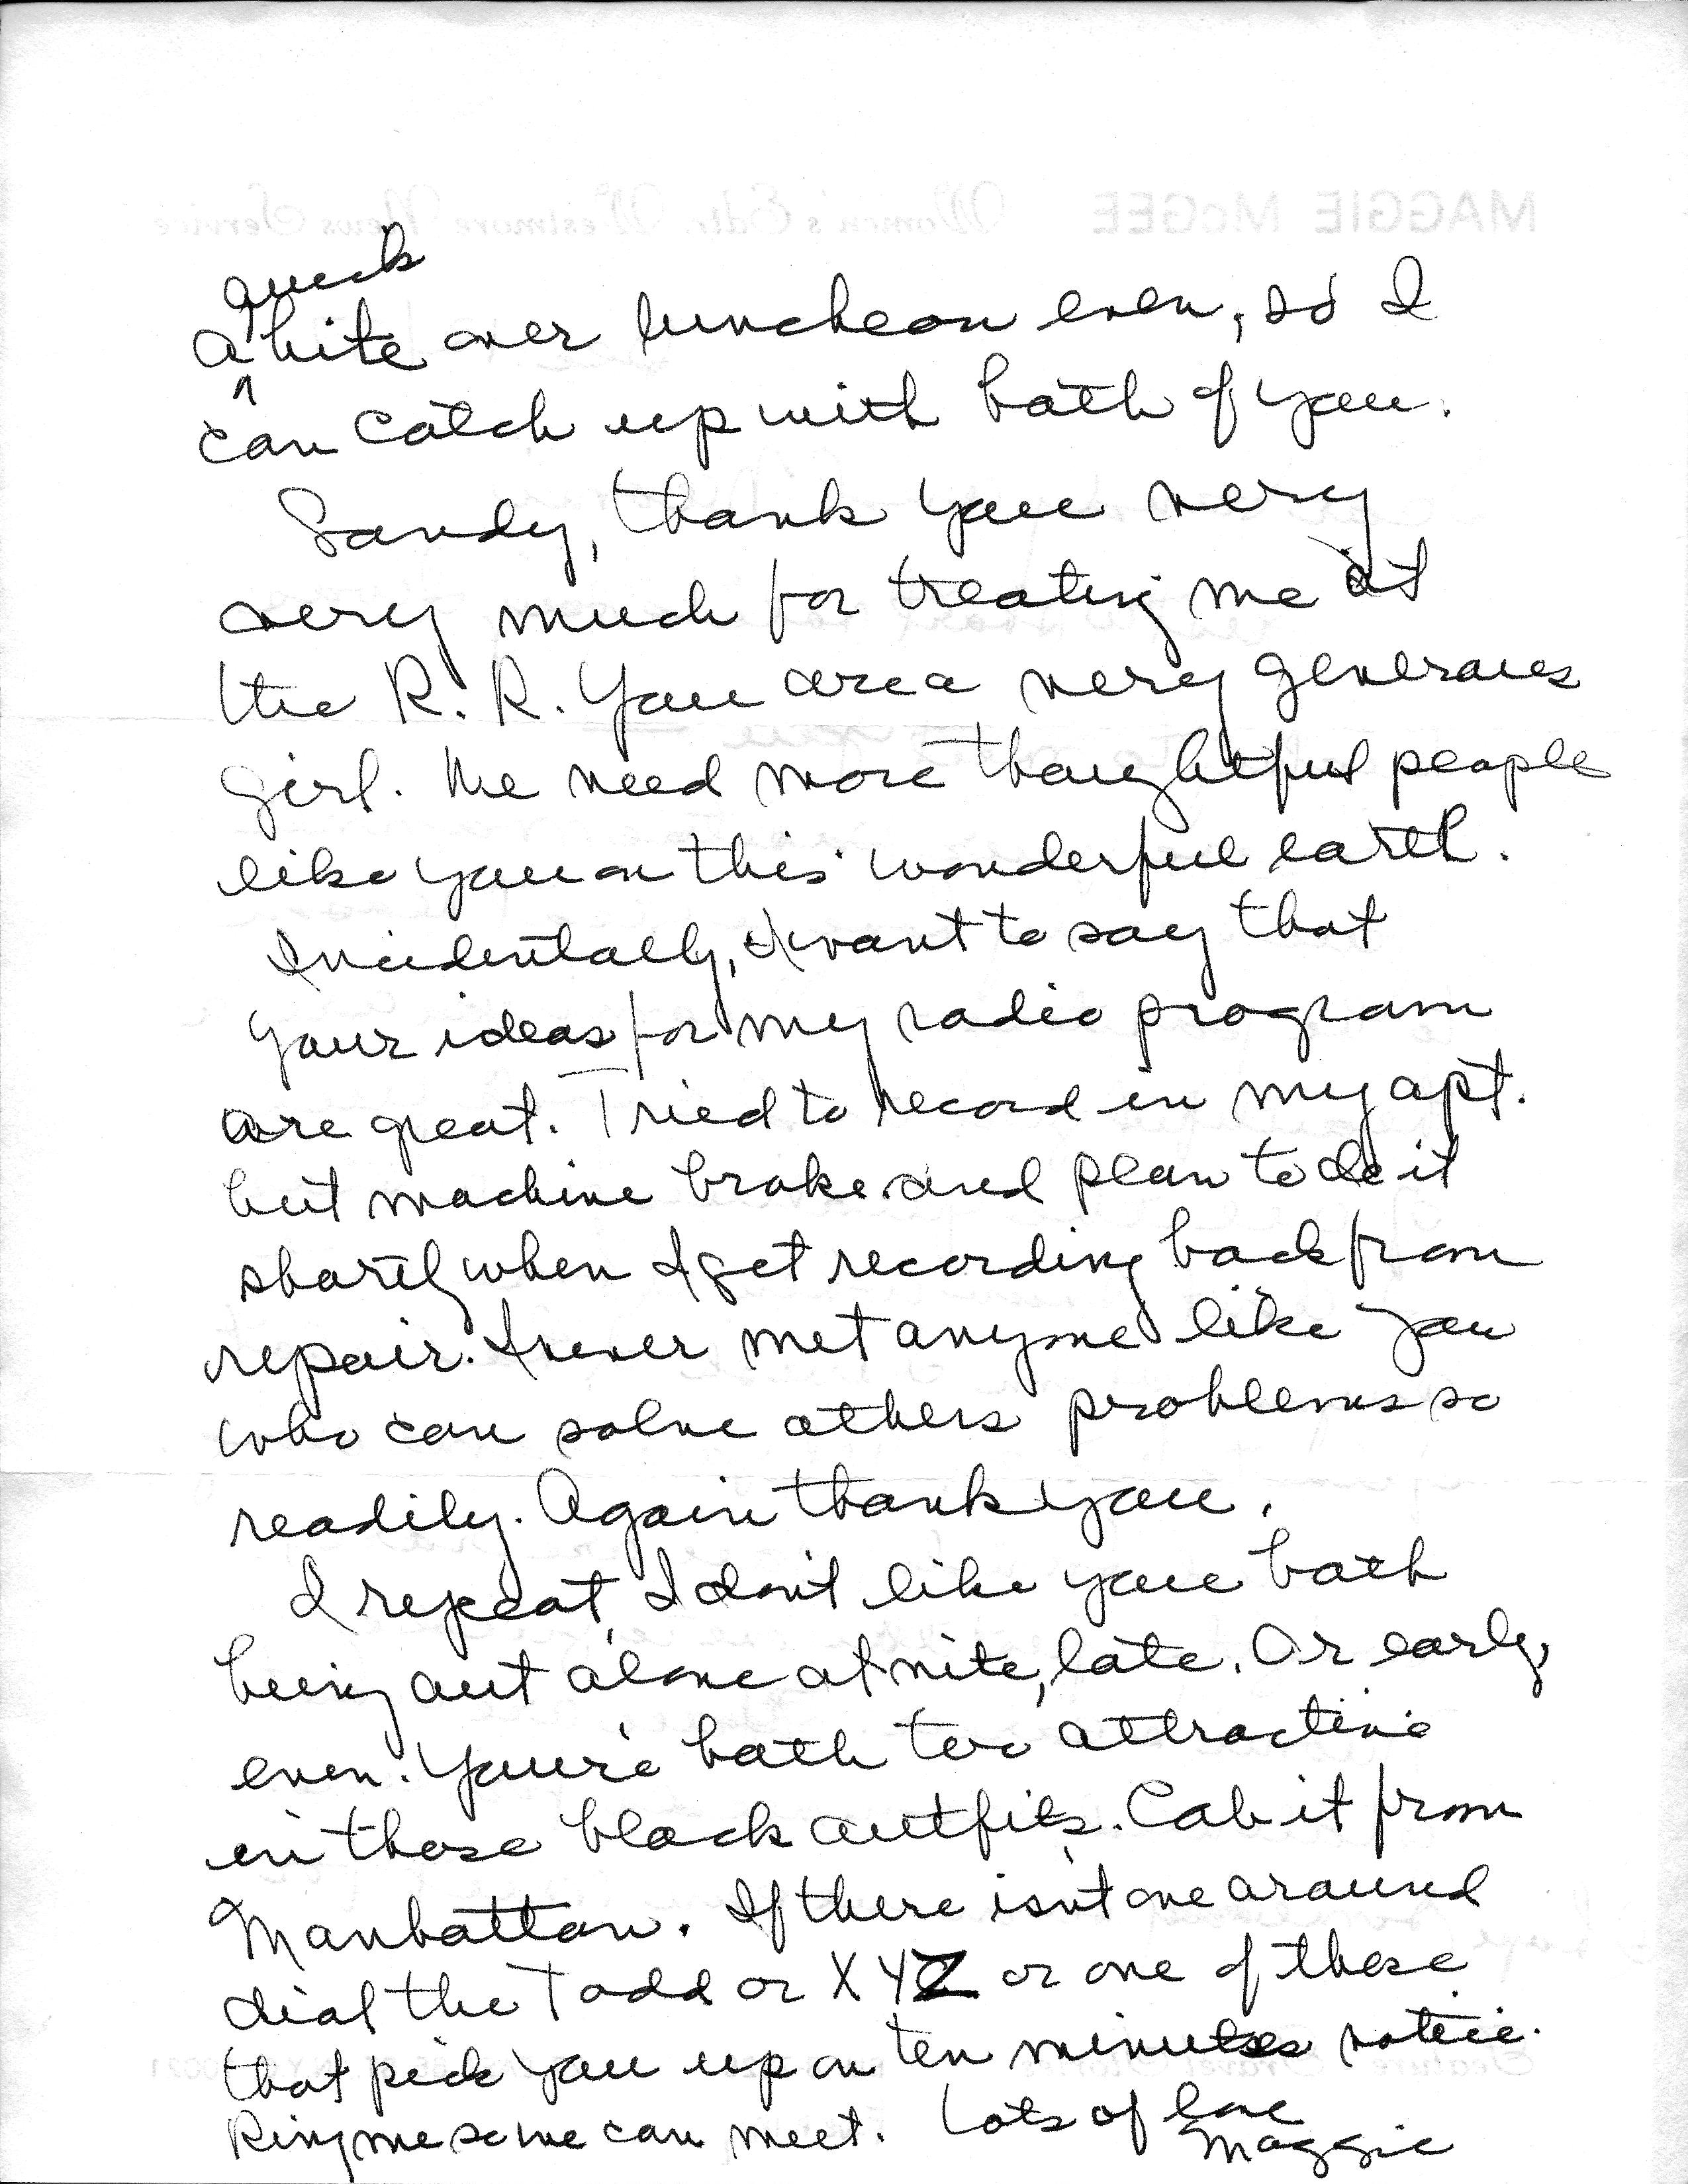 MAGGIE McGEE Women's Edtr. Westmore News Service
quick
a ^ bite over luncheon even, so I
can catch up with both of you.
Sandy, thank you very
very much for treating me at
the R.R. You are a very generous
girl. We need more thoughtful people
like you on this wonderful earth.
Incidentally, I want to say that
your ideas for my radio program
are great. Tried to record in my apt.
but machine broke and plan to do it
shortly when I get recording back from
repair. I never met anyone like you
who can solve others problems so
readily. Again thank you.
I repeat, I don't like you both
being out alone at nite, late. Or early,
even. You're both too attractive
in those black outfits. Cab it from
Manhattan. If there isn't one around
dial the Todd or XYZ or one of these
that pick you up on ten minutes notice.
Ring me so we can meet. Lots of love
Maggie